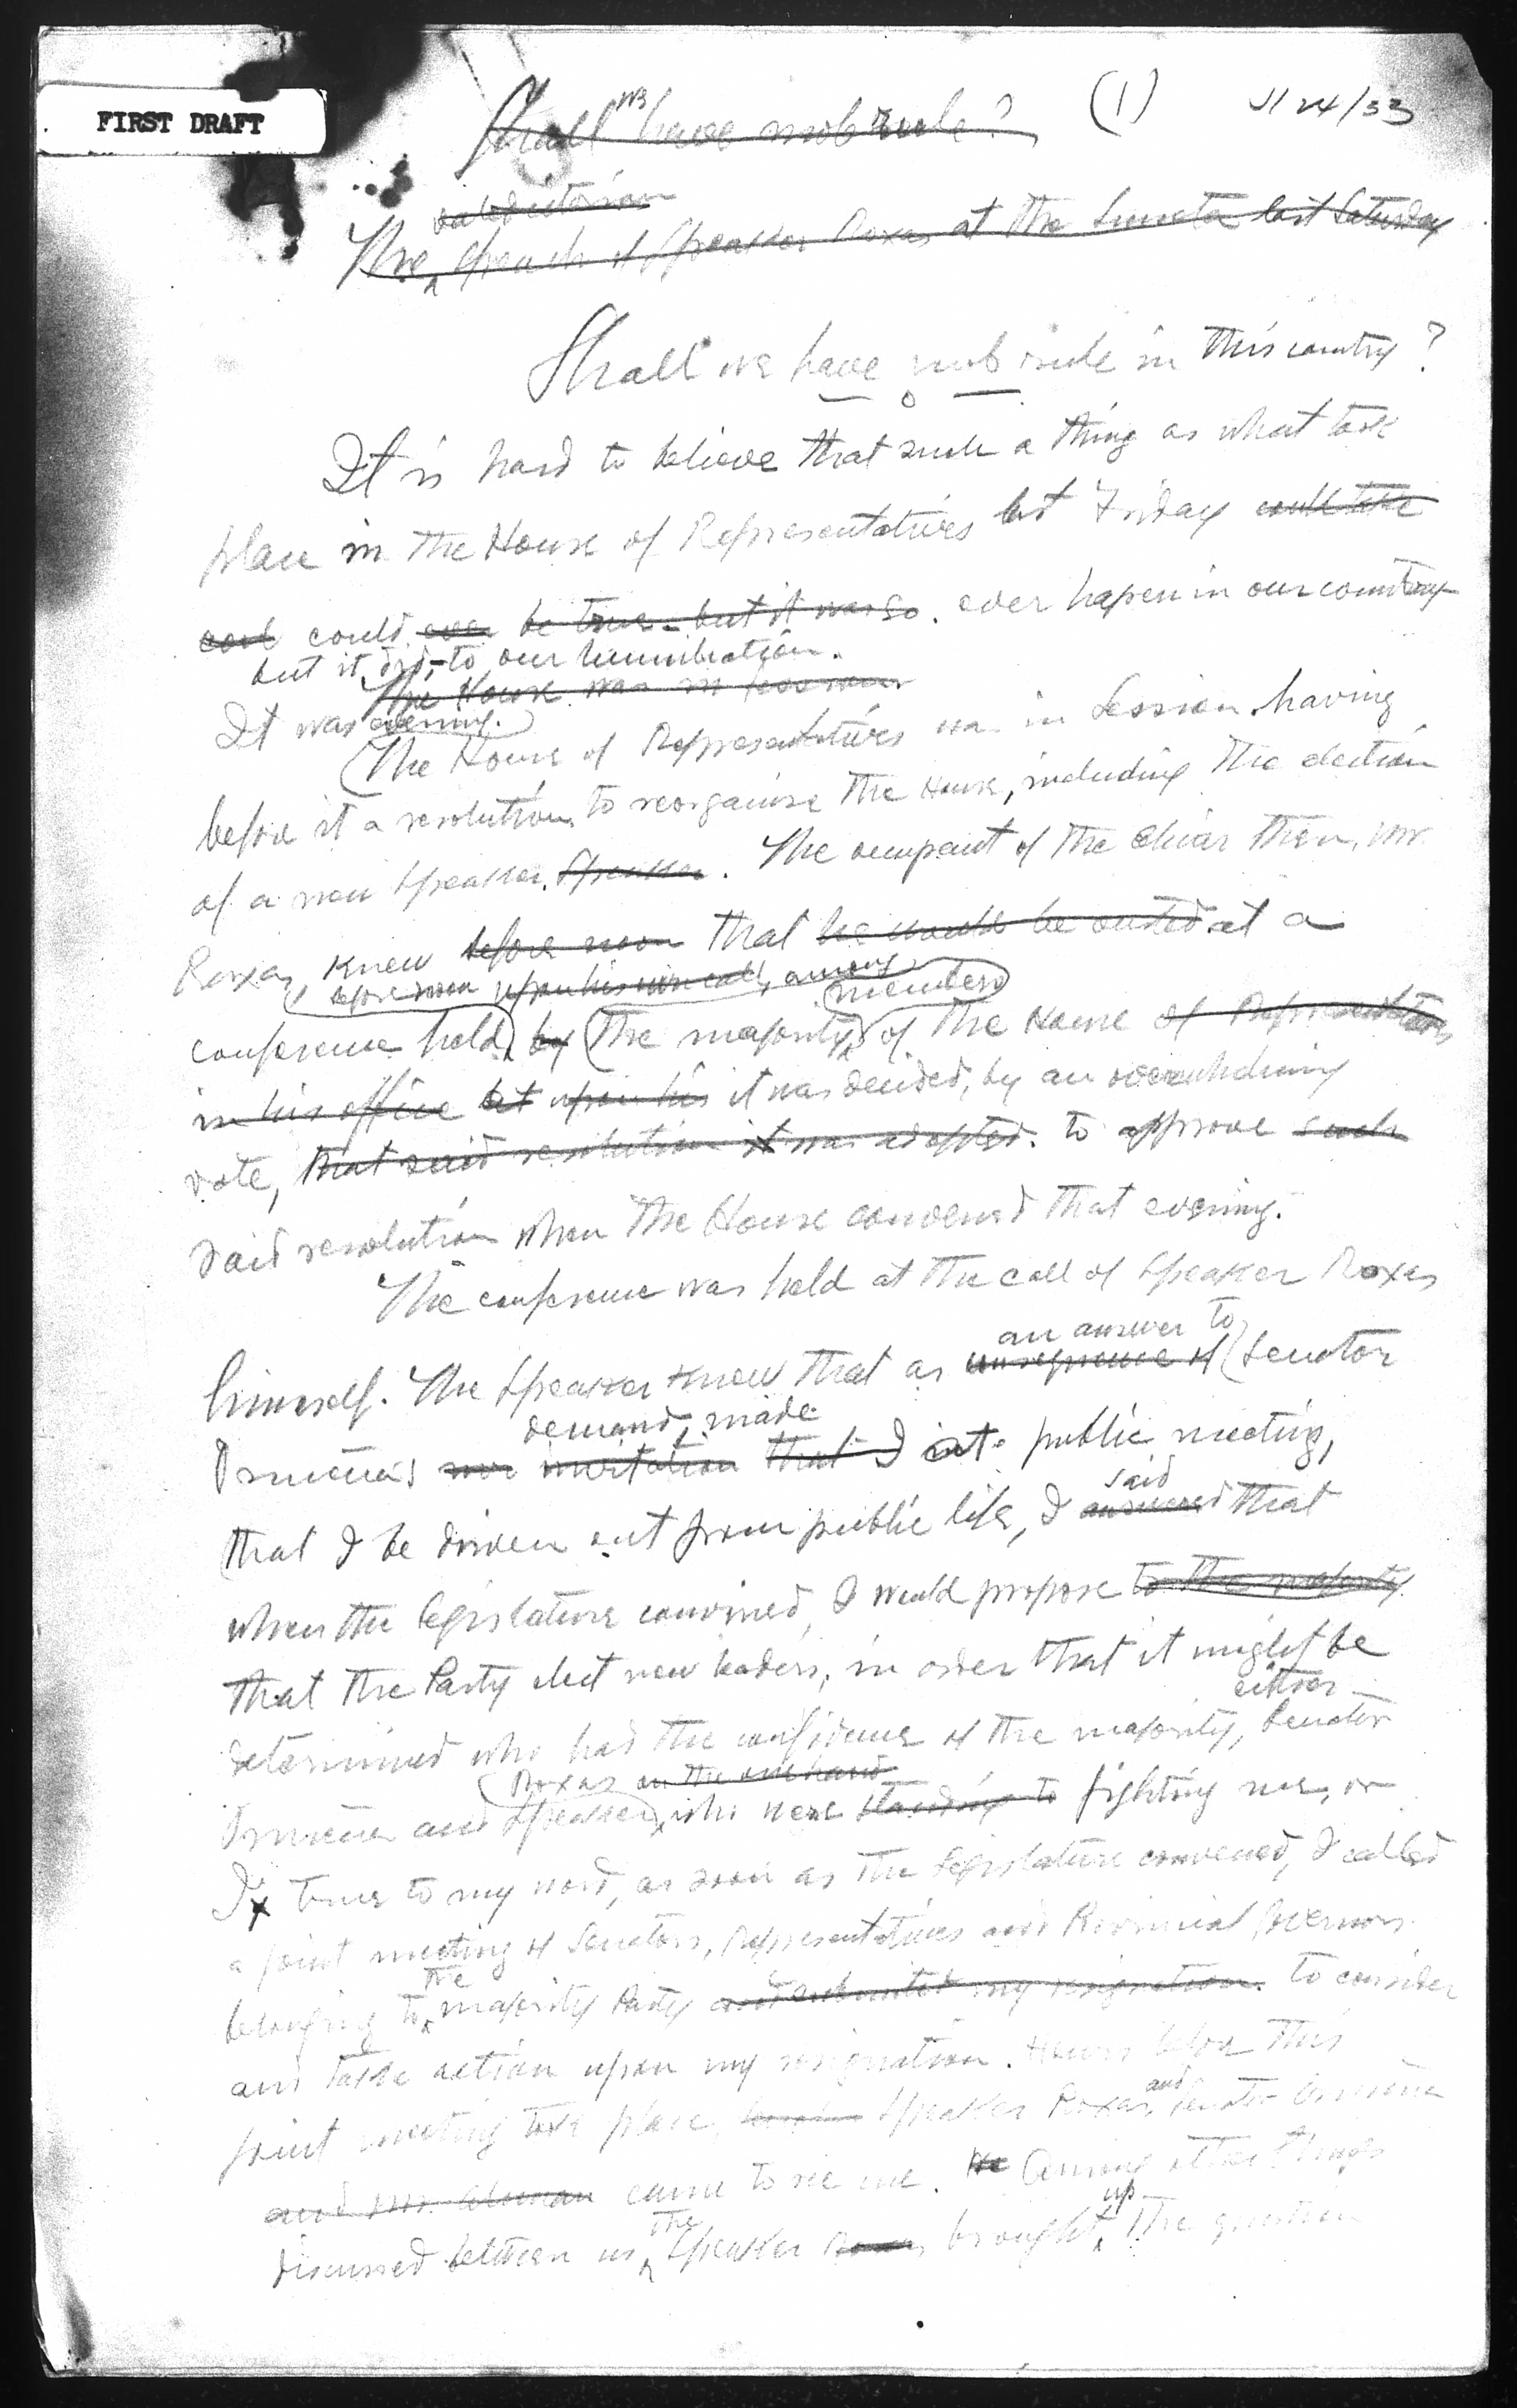 FIRST DRAFT
(1)
Shall we have mob rule?
valedictorian
The speech of Speaker Roxas at the Luneta last Saturday
Shall we have mob rule in this country?
It is hard to believe that such a thing as what took
place in the House of Representatives last Friday could take
could ever be true - but it was so. ever hapen in our country
but it did, - to our humiliation.
The House was in session
It was evening.
The House of Representatives was in Session having
before it a resolution to reorganize the House, including the election
of a new Speaker. Speaker. The occupant of the chair then, Mr.
Roxas, knew before noon that he would be ousted at a
before noon upon his own call, among members
conference held by the majority of the House of Representatives
in his office but upon his it was decided, by an overwhelming
vote, that said resolution it was adopted. to approve such
said resolution when the House convened that evening.
The conference was held at the call of Speaker Roxas
an answer to
himself. The Speaker knew that as consequence of Senator
demand, made
Osmeña's invitation that I at public meeting,
said
that I be driven out from public life, I answered that
when the legislature convined, I would propose to the majority
that the Party elect new leaders, in order that it might be
either
determined who had the confidence of the majority, Senator
Roxas on the one hand
Osmeña and Speaker, who were standing to fighting me, or
I. true to my word, as soon as the Legislature convened, I called
a joint meeting of Senators, Representatives and Provincial Governors
the
belonging to majority Party and submitted my resignation. to consider
and take action upon my resignation. Hours before this
and
joint meeting took place, Speaker Roxas, Senator Osmeña
and Mr. came to see me. He Among other things
the up
discussed between us, Speaker Roxas brought the question